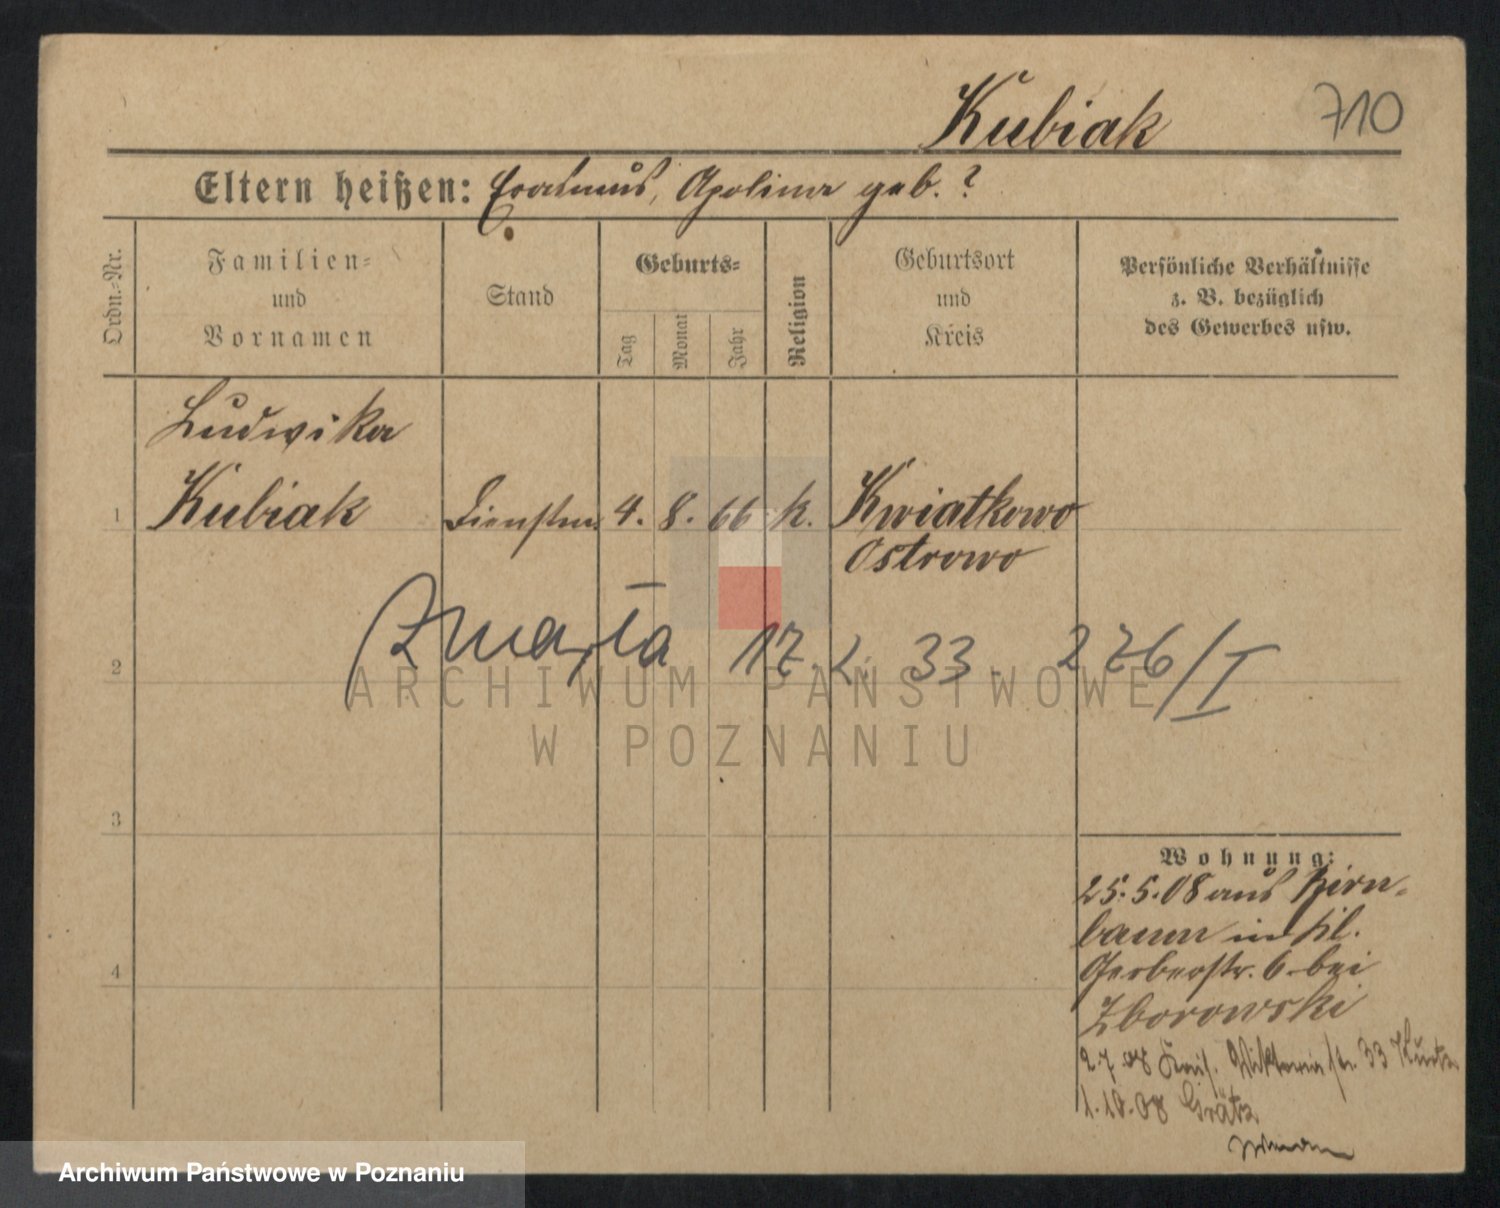 Kubiak 710
Eltern heißen: Erasmus, Apolina geb. ?
Ordn.-Nr.
Familien-
und
Vornamen
Stand
Geburts-
Tag
Monat
Jahr
Religion
Geburtsort
und
Kreis
Persönliche Verhältnisse
z. B. bezüglich
des Gewerbes usw.
Ludwika
1 Kubiak Dienstm. 4. 8. 66 k. Kwiatkowo
Ostrowo
Zmarła 17. 2. 33. 276/I
2
ARCHIWUM PAŃSTWOWE
W POZNANIU
3
Wohnung:
25.5.08 aus Birn-
baum in Kl.
4 Gerberstr. 6 bei
Zborowski
2.7.08 Kais. Viktoria str. 33
1.10.08 Grätz
Archiwum Państwowe w Poznaniu